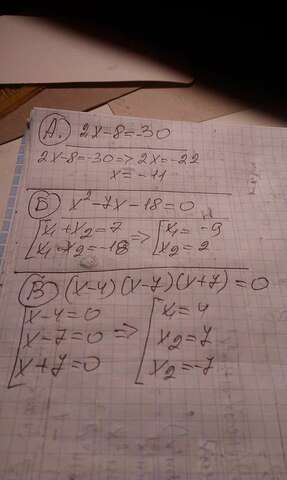 А. 2x-8=-30
2x-8=-30=>2x=-22
x=-11
Б x²-7x-18=0
[x₁+x₂=7 => [x₁=-9
x₁·x₂=-18 x₂=2
В (x-4)(x-7)(x+7)=0
[x-4=0 [x₁=4
x-7=0 => x₂=7
x+7=0 x₂=-7